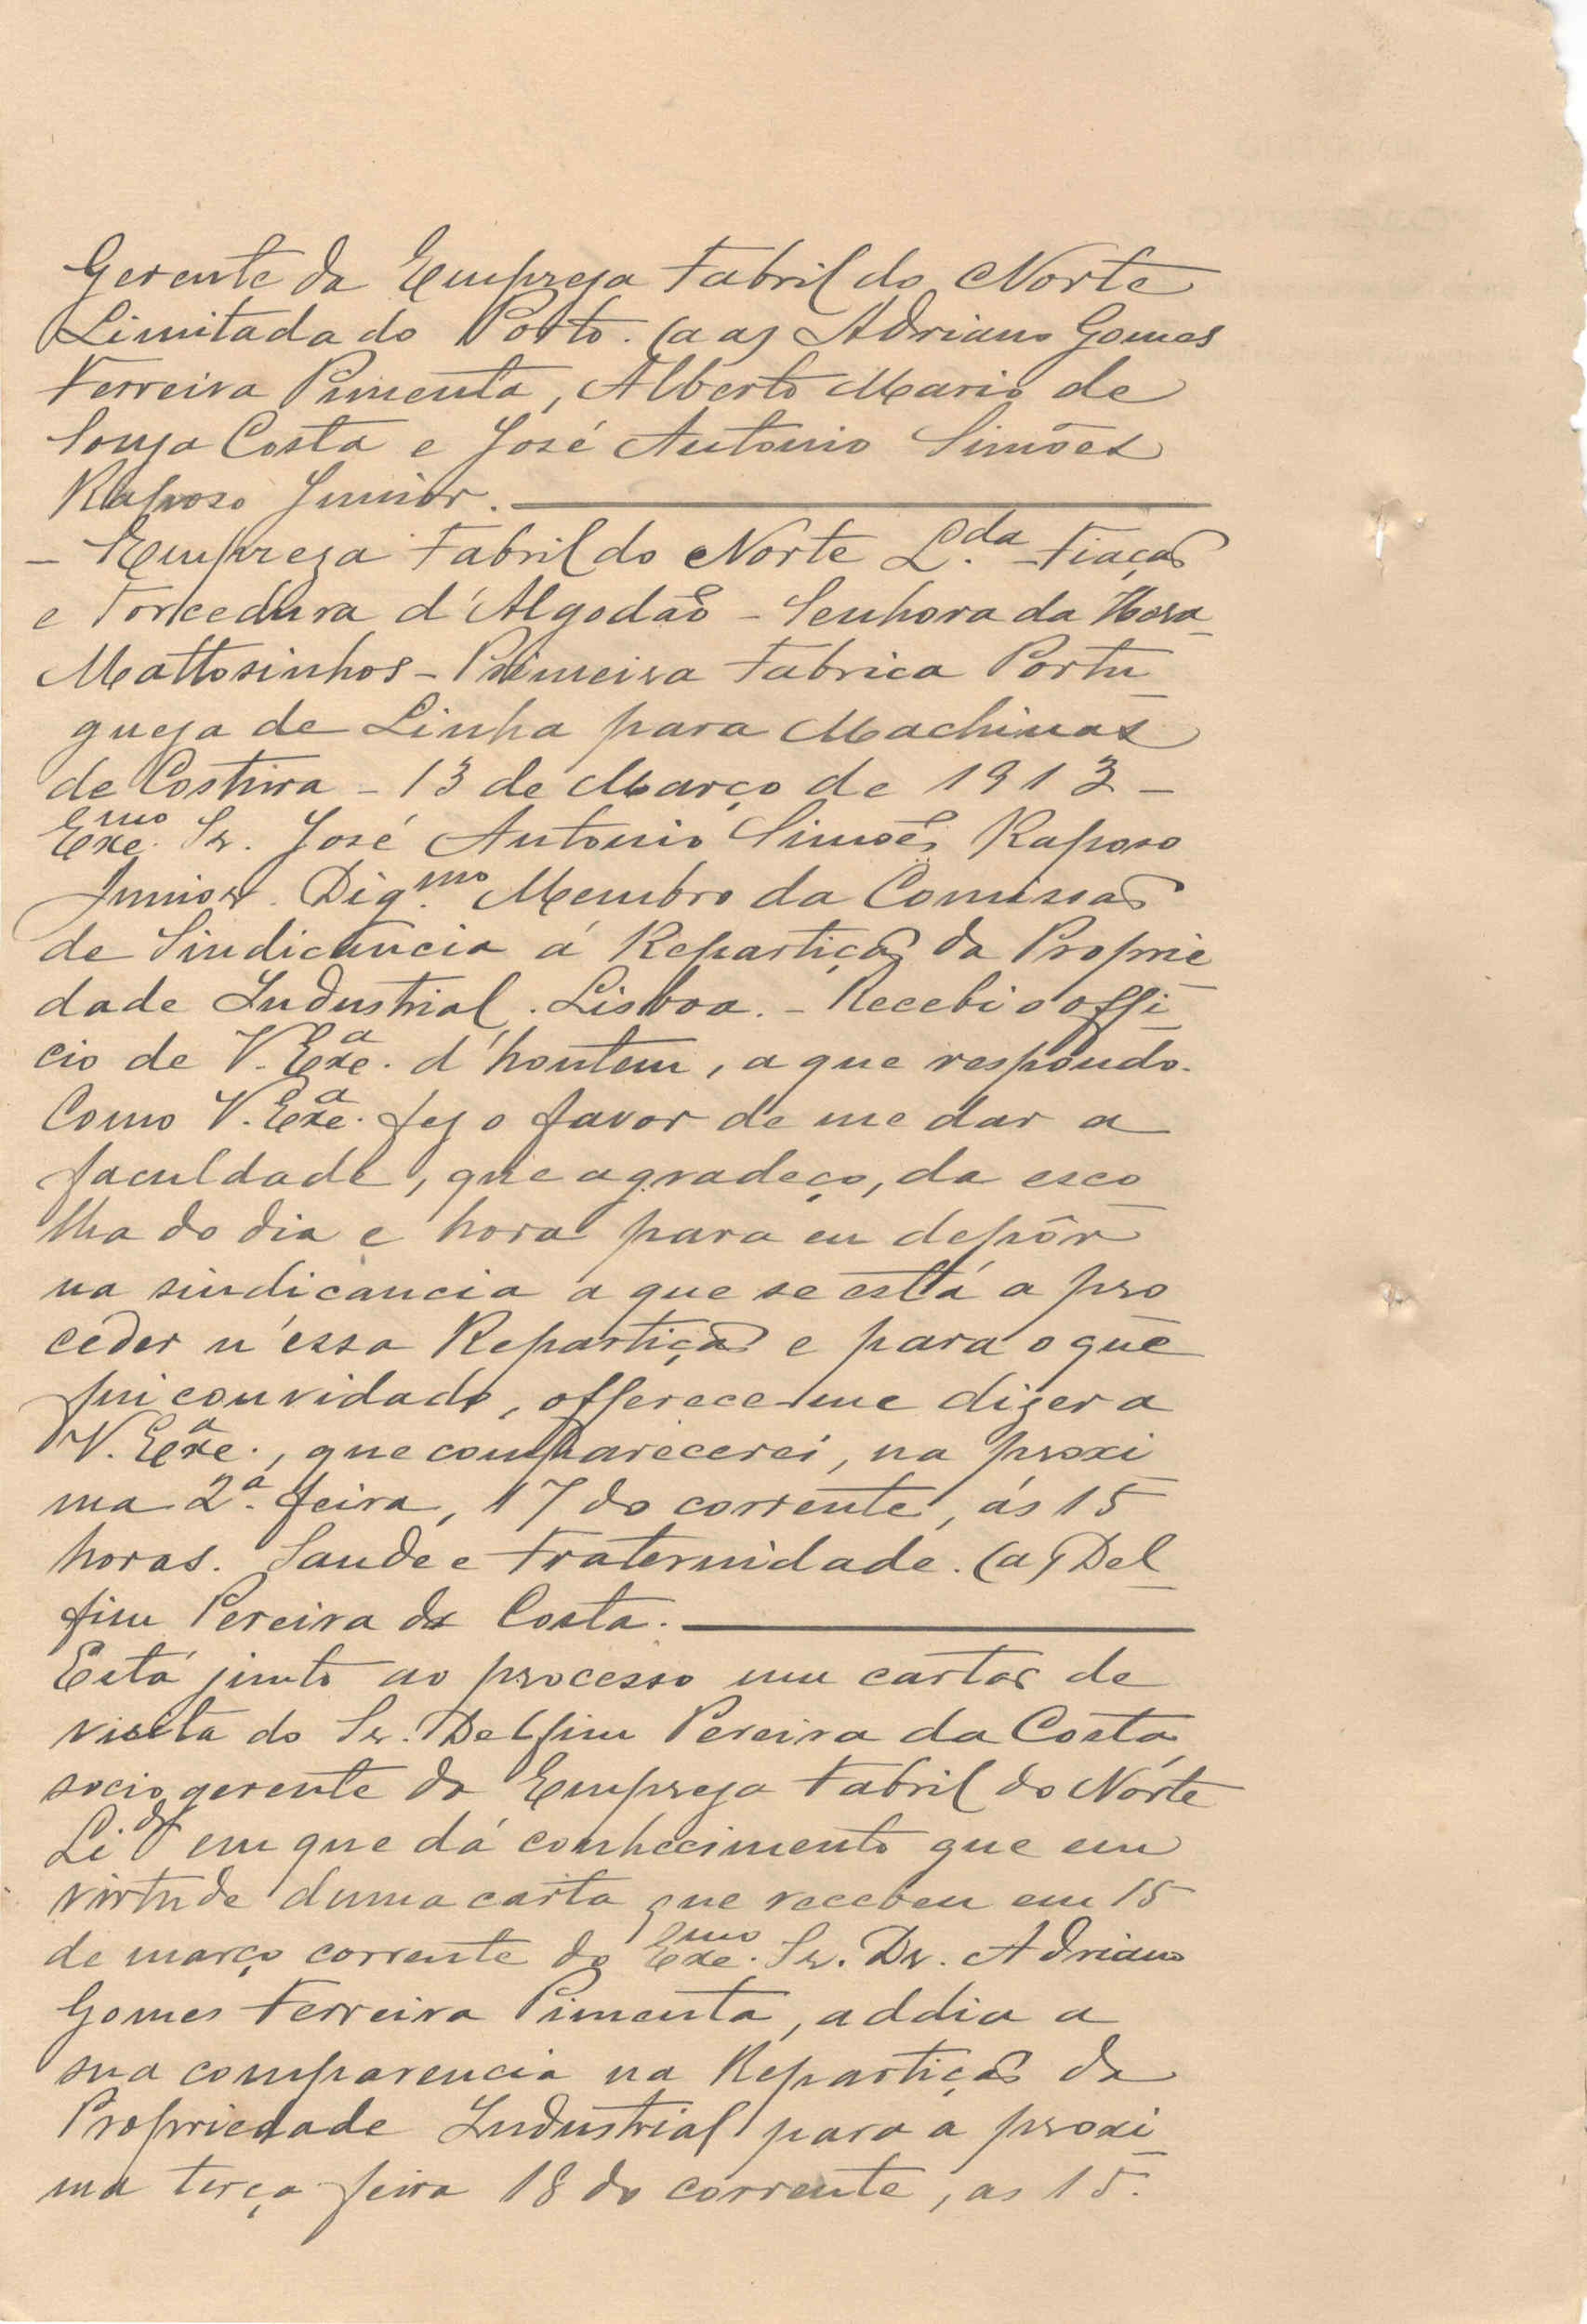 Gerente da Empreza Fabril do Norte
Limitada do Porto. (a a) Adriano Gomes
Ferreira Pimenta, Alberto Mario de
Souza Costa e José Antonio Simões
Raposo Junior.
- Empreza Fabril do Norte L.da Fiação
e Torcedura d'Algodão - Senhora da Hora -
Mattosinhos - Primeira Fabrica Portu-
gueza de Linha para Machinas
de Costura - 13 de Março de 1913 -
Exe.mo Sr. José Antonio Simões Raposo
Junior. Dig.mo Membro da Comissão
de Sindicancia á Repartição da Proprie-
dade Industrial. Lisboa. - Recebi o offi-
cio de V. Exe.a d'hontem, a que respondo.
Como V. Exe.a fez o favor de me dar a
faculdade, que agradeço, da esco-
lha do dia e hora para eu depôr
na sindicancia a que se está a pro-
ceder n'essa Repartição e para o que
fui convidado, offerece-me dizer a
V. Exe.a, que comparecerei, na proxi-
ma 2.a feira, 17 do corrente, ás 15
horas. Saude e Fraternidade. (a) Del-
fim Pereira da Costa.
Está junto ao processo um cartão de
visita do Sr. Delfim Pereira da Costa,
socio gerente da Empreza Fabril do Norte
Li.da em que dá conhecimento que em
virtude duma carta que recebeu em 15
de março corrente do Exe.mo Sr. Dr. Adriano
Gomes Ferreira Pimenta, addia a
sua comparencia na Repartição da
Propriedade Industrial para a proxi-
ma terça feira 18 do corrente, as 15.